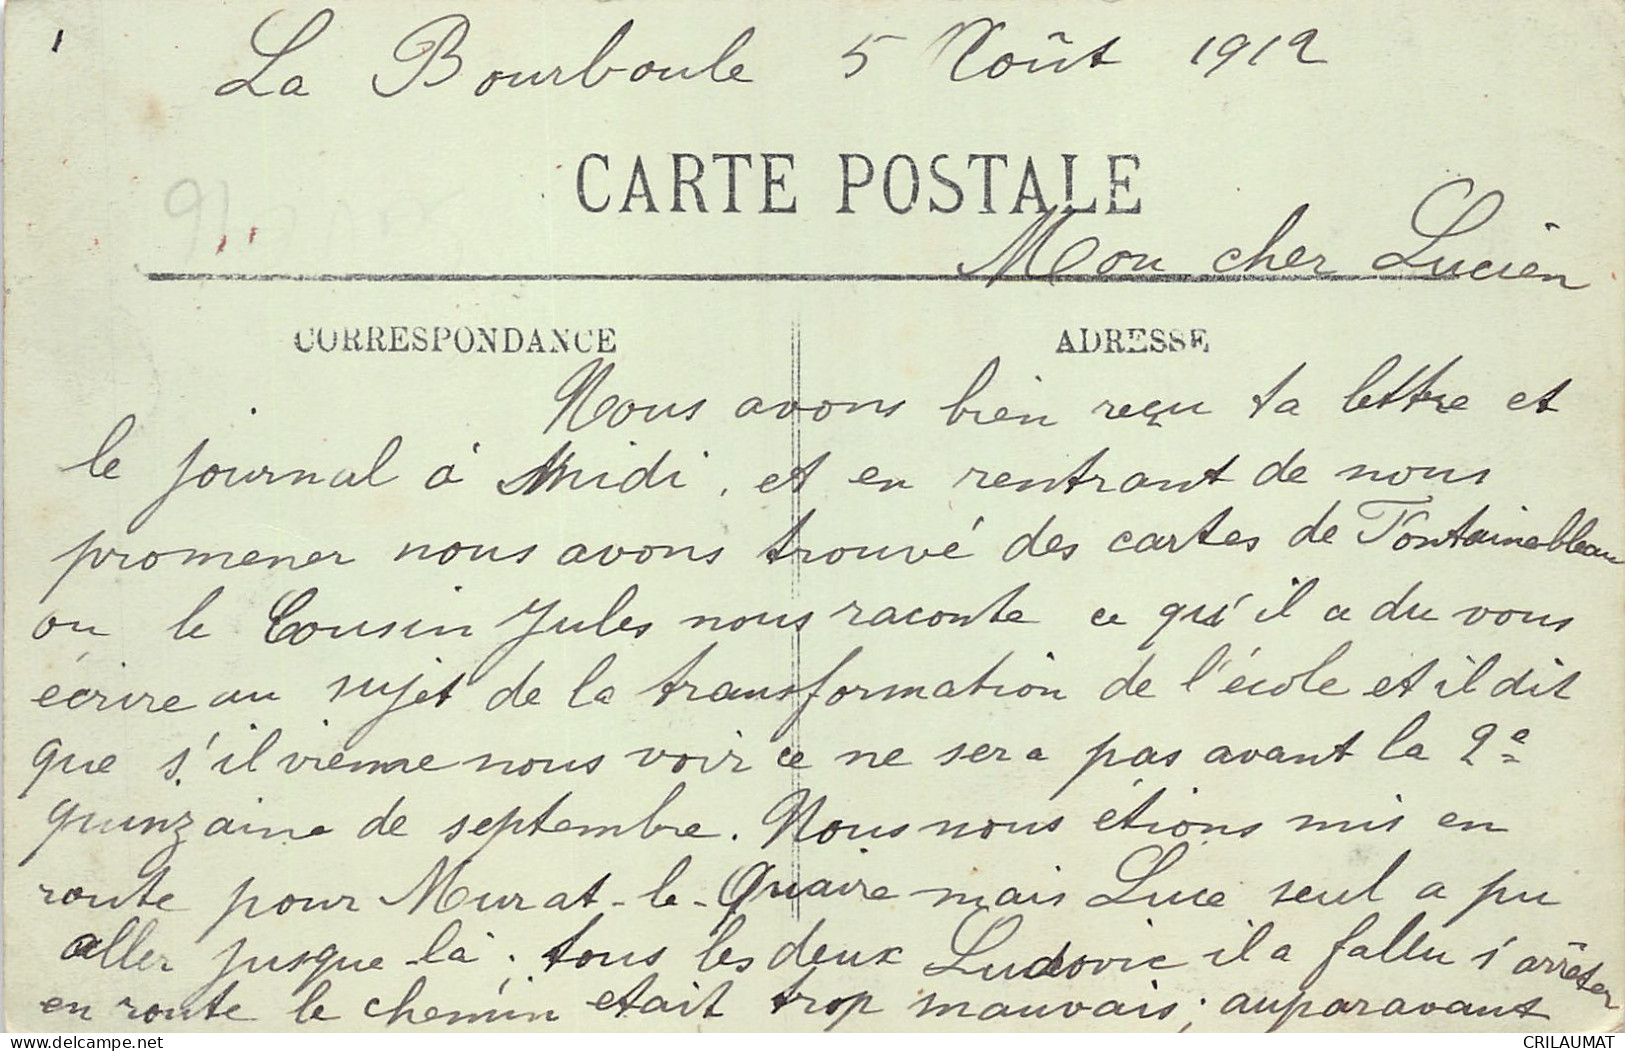 La Bourboule 5 Août 1912
CARTE POSTALE
Mon cher Lucien
CORRESPONDANCE
ADRESSE
Nous avons bien reçu ta lettre et
le journal à midi, et en rentrant de nous
promener nous avons trouvé des cartes de Fontainebleau
ou le Cousin Jules nous raconte ce qu'il a du vous
écrire au sujet de la transformation de l'école et il dit
que s'il vienne nous voir ce ne sera pas avant la 2e
quinzaine de septembre. Nous nous étions mis en
route pour Murat-le-Quaire mais Luce seul a pu
aller jusque là; tous les deux Ludovic il a fallu s'arrêter
en route le chemin etait trop mauvais; auparavant
CRILAUMAT